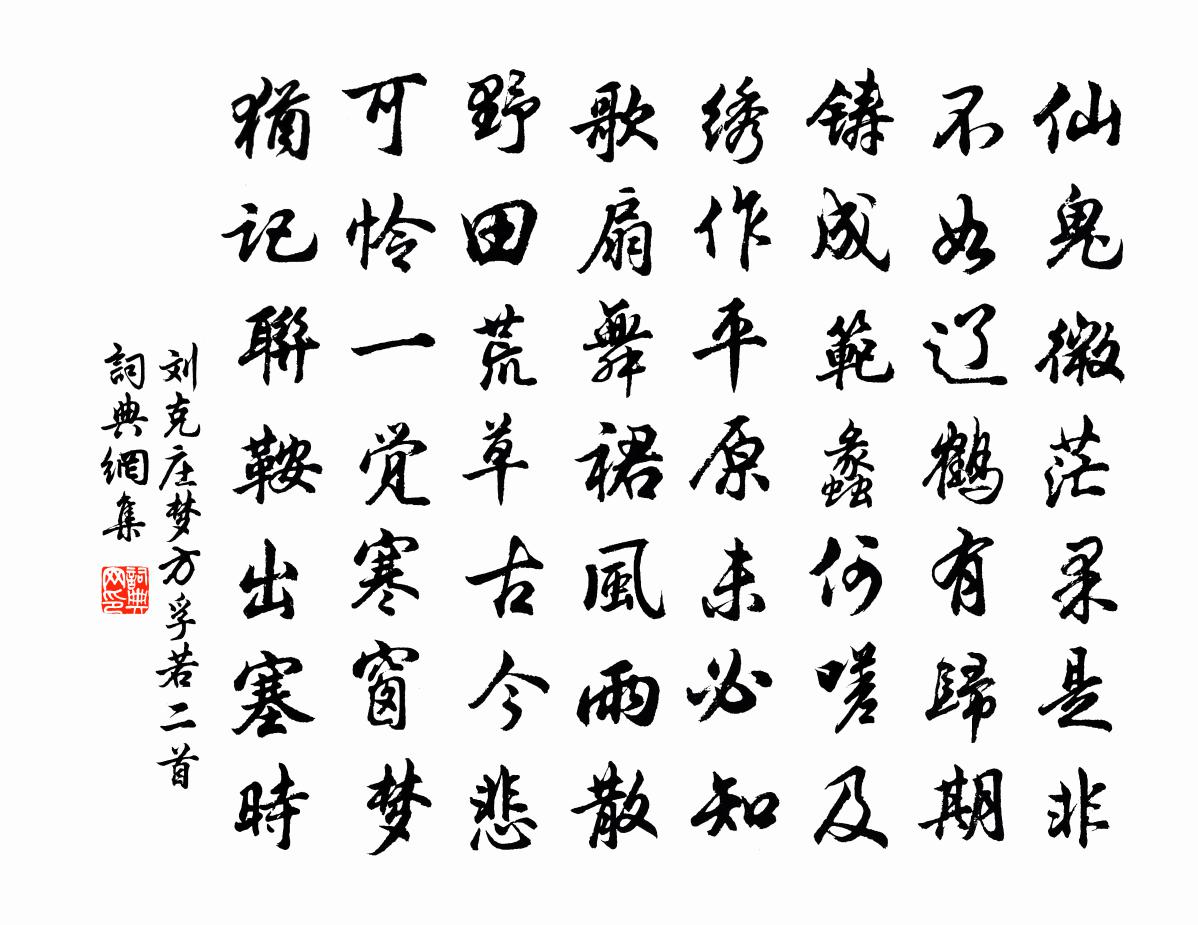 仙鬼微茫果是非
不如辽鶴有歸期
鑄成範蠡何嗟及
绣作平原未必知
歌扇舞裙風雨散
野田荒草古今悲
可怜一觉寒窗梦
猶记聯鞍出塞時
刘克庄梦方孚若二首
詞典網集
詞典网印